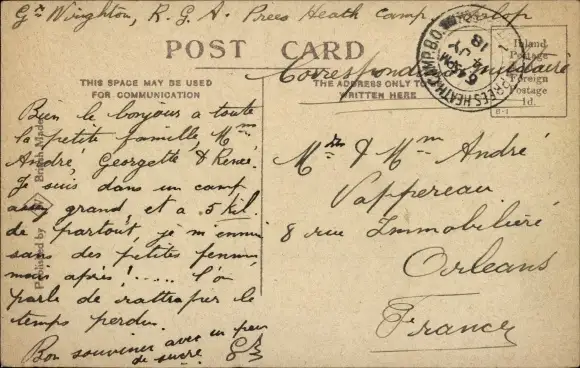 Gr Wington, R. G. A. Prees Heath Camp, Salop
POST CARD
Correspondance militaire
THIS SPACE MAY BE USED
FOR COMMUNICATION
THE ADDRESS ONLY TO
WRITTEN HERE
Inland
Postage
Foreign
Postage
1d.
PREES HEATH CAMP B.O.
JY
18
Published by
British Made
Bien le bonjour a toute
la petite famille, Mme
André, Georgette & Renée.
Je suis dans un camp
assez grand, et a 5 kil.
de partout, je m'ennui
sans des petites femmes,
mais après! ..... l'on
parle de rattraper le
temps perdu.
Bon souvenir avec un peu
de sucre
& Mme André
Vappereau
8 rue Immobilière
Orleans
France